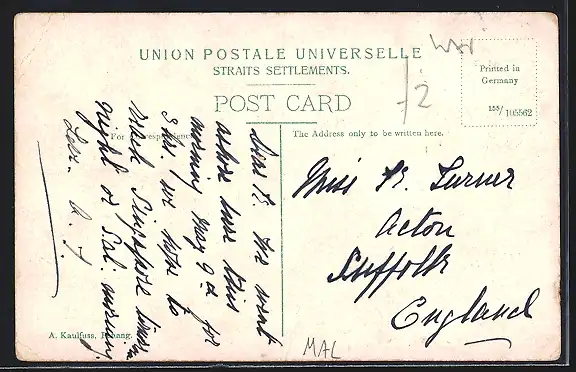 UNION POSTALE UNIVERSELLE
STRAITS SETTLEMENTS.
POST CARD
Printed in
Germany
155/105562
72
For
The Address only to be written here.
Dear R. We went
ashore here this
morning May 9th for
3 hrs. we hope to
reach Singapore
night or Sat. morning
Love. A. J.
Miss R. Turner
Acton
Suffolk
England
A. Kaulfuss, Penang.
MAL